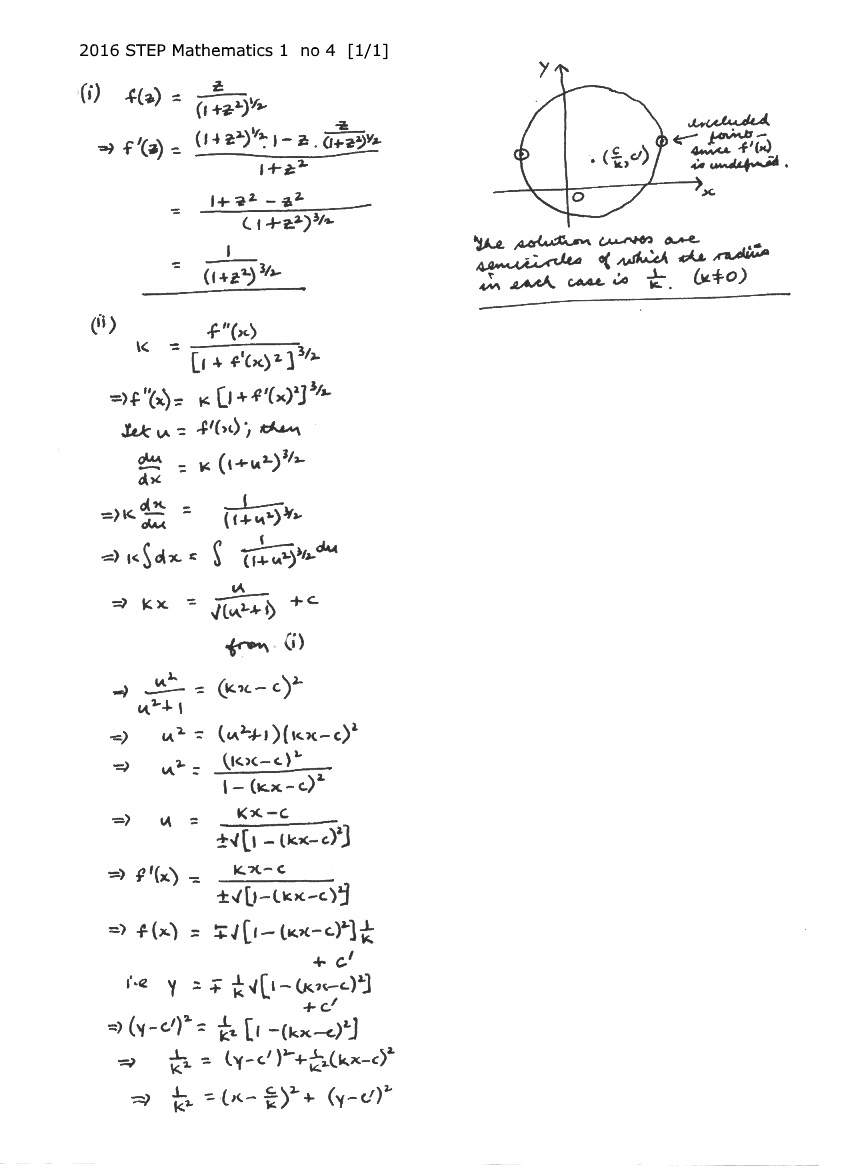 2016 STEP Mathematics 1 no 4 [1/1]
(i) f(z) = z / (1+z²)^½
⇒ f'(z) = ((1+z²)^½ · 1 − z · z/(1+z²)^½) / (1+z²)
= (1+z²−z²) / (1+z²)^3/2
= 1 / (1+z²)^3/2
(ii) κ = f''(x) / [1 + f'(x)²]^3/2
⇒ f''(x) = κ [1+f'(x)²]^3/2
Let u = f'(x); then
du/dx = κ (1+u²)^3/2
⇒ κ dx/du = 1 / (1+u²)^3/2
⇒ κ∫dx = ∫ 1/(1+u²)^3/2 du
⇒ κx = u/√(u²+1) + c
from (i)
⇒ u²/(u²+1) = (κx−c)²
⇒ u² = (u²+1)(κx−c)²
⇒ u² = (κx−c)² / (1−(κx−c)²)
⇒ u = (κx−c) / ±√[1−(κx−c)²]
⇒ f'(x) = (κx−c) / ±√[1−(κx−c)²]
⇒ f(x) = ∓√[1−(κx−c)²] 1/κ
+ c'
i.e y = ∓ 1/κ √[1−(κx−c)²]
+c'
⇒ (y−c')² = 1/κ² [1−(κx−c)²]
⇒ 1/κ² = (y−c')² + 1/κ² (κx−c)²
⇒ 1/κ² = (x − c/κ)² + (y−c')²
y
(c/κ, c')
O
x
excluded
points –
since f'(x)
is undefined.
The solution curves are
semicircles of which the radius
in each case is 1/κ. (κ≠0)